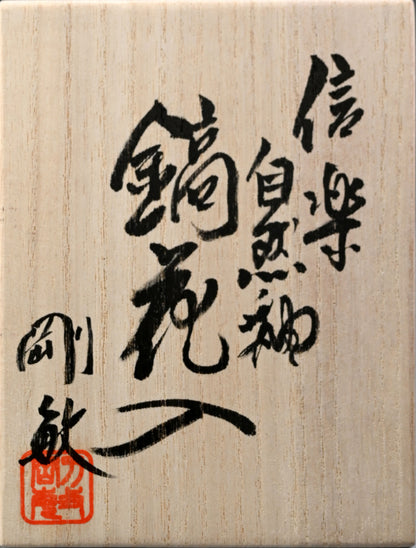 信楽
自然釉
鎬花入
剛敏